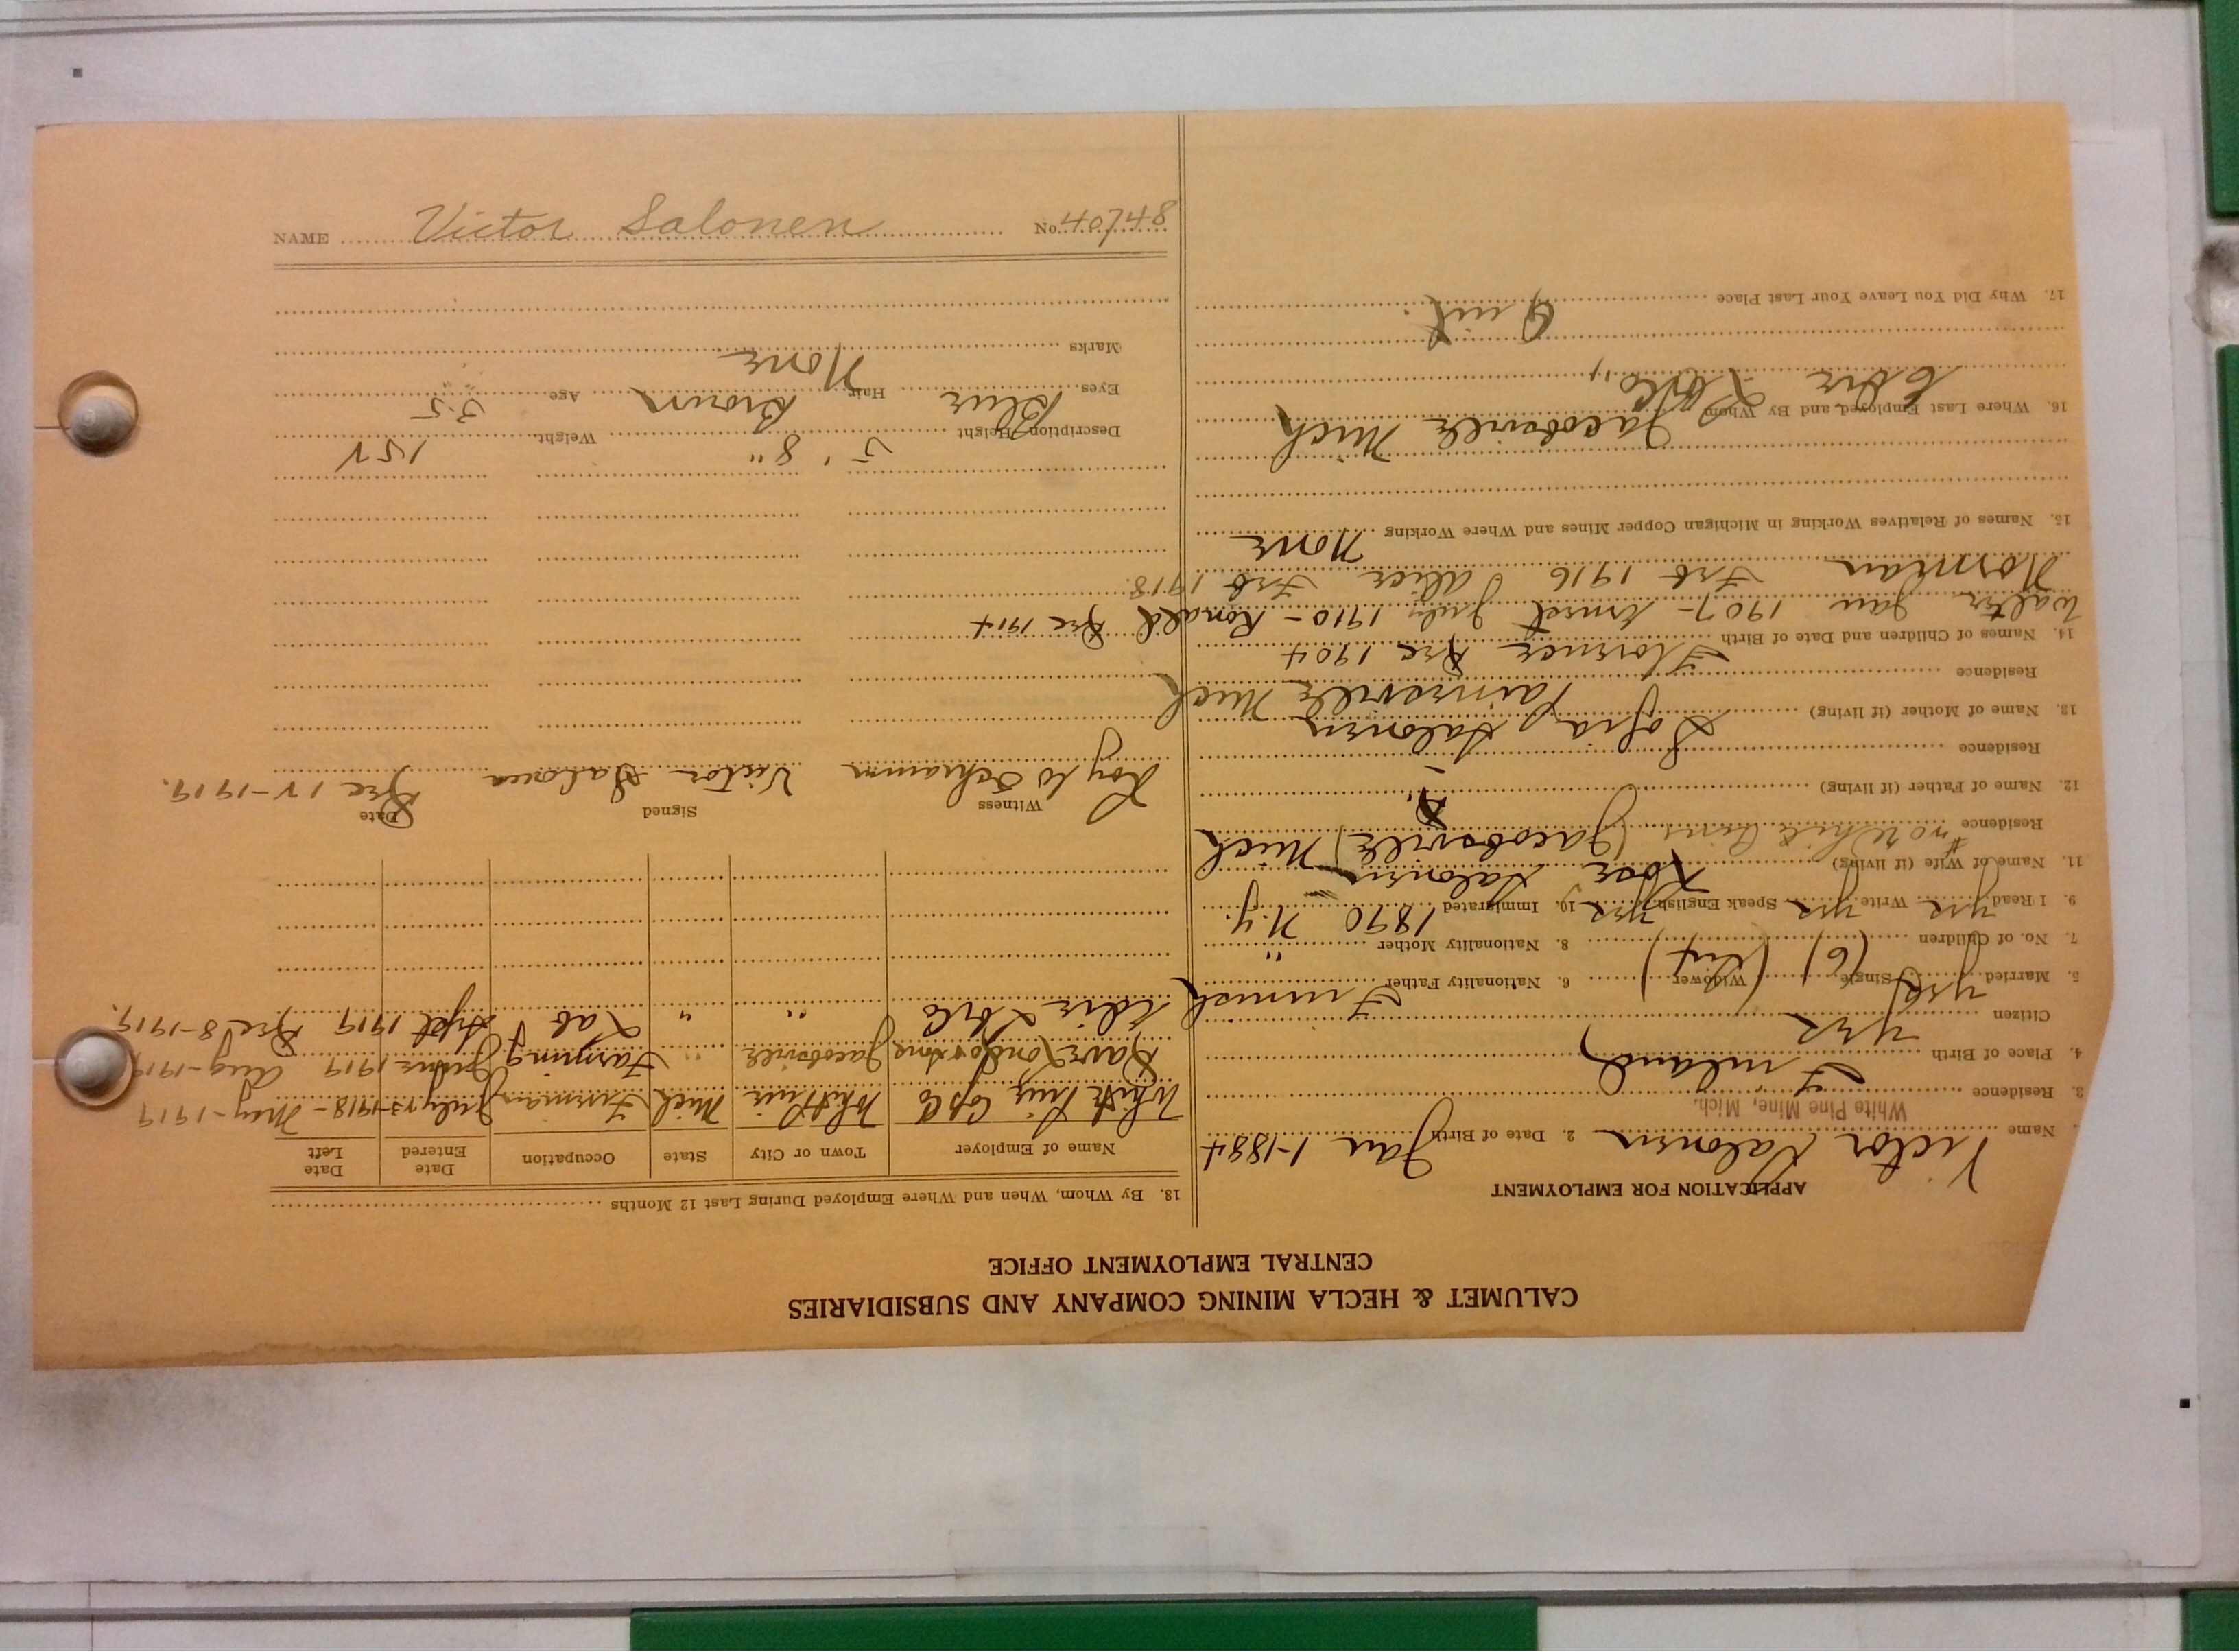 CALUMET & HECLA MINING COMPANY AND SUBSIDIARIES
CENTRAL EMPLOYMENT OFFICE
APPLICATION FOR EMPLOYMENT
Name Victor Salonen 2. Date of Birth Jan 1-1884
White Pine Mine, Mich.
3. Residence
4. Place of Birth Finland
Citizen yes
5. Married yes Single Widower 6. Nationality Father Finnish
7. No. of Children (6) 8. Nationality Mother "
9. I Read yes Write yes Speak English yes 10. Immigrated 1890 N.Y.
11. Name of Wife (if living) Rose Salonen
Residence White Pine (Jacobsville) Mich
12. Name of Father (if living)
Residence
13. Name of Mother (if living) Sofia Salonen
Residence Painesville Mich
14. Names of Children and Date of Birth Florence Dec 1904
Walter Jan 1907 - Ernest July 1910 - Ronald Dec 1914
Norman Feb 1916 Alice Feb 1918.
15. Names of Relatives Working in Michigan Copper Mines and Where Working None
16. Where Last Employed and By Whom Jacobsville Mich
17. Why Did You Leave Your Last Place Quit.
18. By Whom, When and Where Employed During Last 12 Months
Name of Employer Town or City State Occupation Date Entered Date Left
White Pine Cop Co White Pine Mich Fireman July 23-1918 - May-1919
Dave Jacobsville " Farming June 1919 Aug-1919
" " Lab Sept 1919 Dec 8-1919.
Witness Signed Date
Roy W Schramm Victor Salonen Dec 12-1919.
Description Height 5' 8" Weight 152
Eyes Blue Hair Brown Age 35
Marks None
NAME Victor Salonen No. 40748